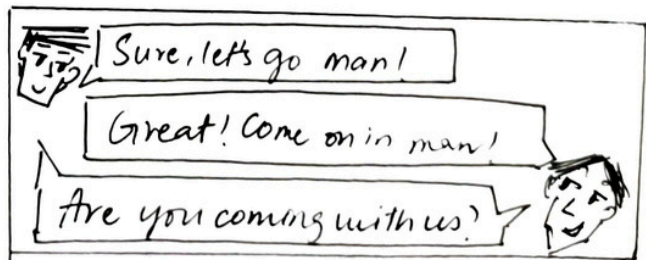 Sure, let's go man!
Great! Come on in man!
Are you coming with us?